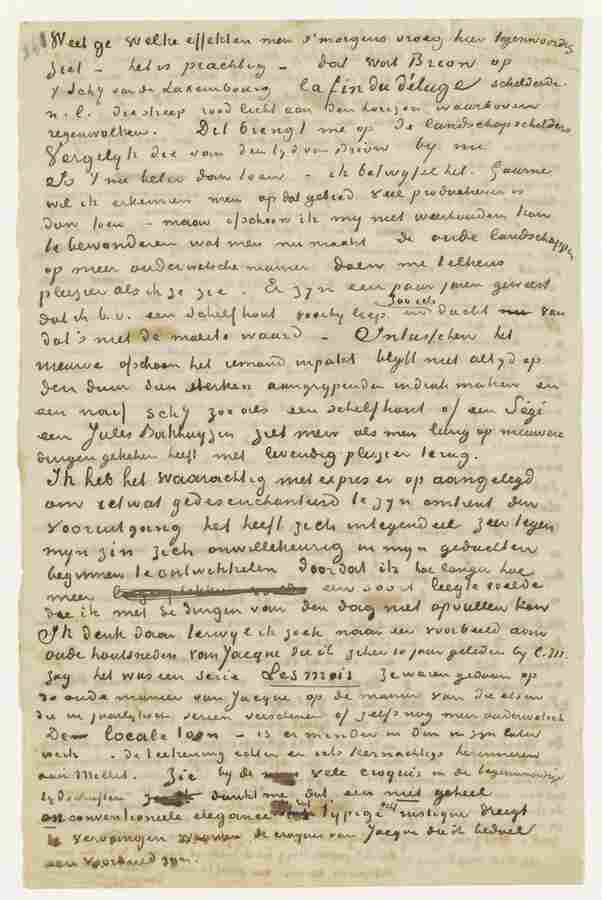 Weet ge welke effekten men s'morgens vroeg hier tegenwoordig
ziet – het is prachtig – dat wat Brion op
't schij van de Luxembourg la fin du déluge schilderde.
n.l. die streep rood licht aan den horizon waarboven
regenwolken. Dit brengt me op de landschapschilders
Vergelijk die van den tijd van Brion bij nu
Is 't nu beter dan toen – ik betwijfel het. Gaarne
wil ik erkennen men op dat gebied veel produktiever is
dan toen – maar ofschoon ik mij niet weerhouden kan
te bewonderen wat men nu maakt de oude landschappen
op meer ouderwetsche manier doen me telkens
pleizier als ik ze zie. Er zijn een paar jaren geweest
dat ik b.v. een Schelfhout voorbij liep en dacht van
zooiets
dat's niet de moeite waard – Intusschen het
nieuwe ofschoon het iemand inpakt blijft niet altijd op
den duur dien sterken aangrijpenden indruk maken en
een naif schij zooals een Schelfhout of een Ségé
een Jules Backhuyzen ziet men als men lang op nieuwere
dingen gekeken heeft met levendig pleizier terug.
Ik heb het waarachtig niet expres er op aangelegd
om ietwat gedesenchanteerd te zijn omtrent den
vooruitgang het heeft zich integendeel zeer tegen
mijn zin zich onwillekeurig in mijn gedachten
beginnen te ontwikkelen doordat ik hoe langer hoe
meer een soort leegte voelde
die ik met de dingen van den dag niet opvullen kan
Ik denk daar terwijl ik zoek naar een voorbeeld aan
oude houtsneden van Jacque die ik zeker 10 jaar geleden bij C.M.
zag het was een serie Les mois ze waren gedaan op
de oude manier van Jacque op de manier van die etsen
die in jaarlijksche seriën verschenen of zelfs nog meer ouderwetsch
De locale toon – is er minder in dan in zijn later
werk – de teekening echter en iets kernachtigs herinneren
aan Millet. Zie bij de vele croquis in de tegenwoordige
tijdschriften dunkt me dat een niet geheel
onconventioneele elegance 't typige echt rustique dreigt
te vervangen de croquis van Jacque die ik bedoel
een voorbeeld zijn.